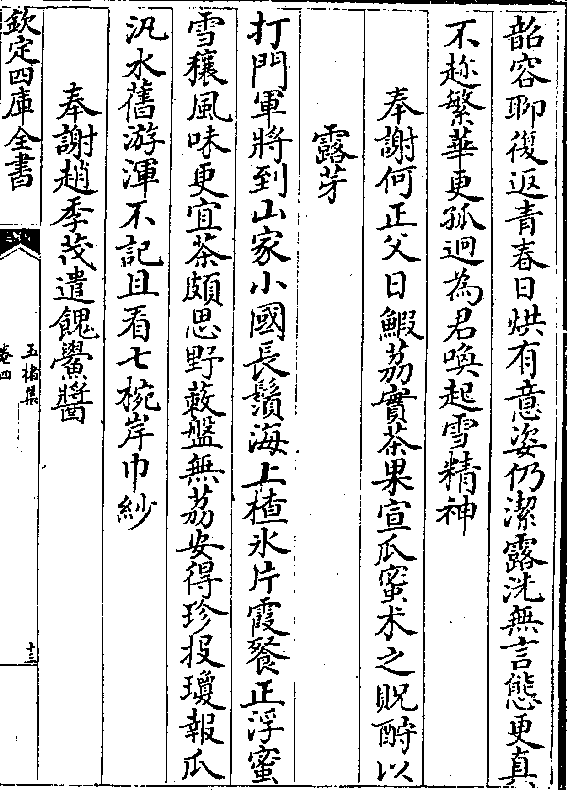 韶容聊復返青春日烘有意姿仍潔露洗無言態更真
不趂繁華更孤迥為君喚起雪精神
奉謝何正父日鰕荔實茶果宣瓜蜜术之貺酧以
露芽
打門軍將到山家小國長鬚海上楂氷片霞餐正浮蜜
雪穰風味更宜茶頗思野蔌盤無荔安得珍投瓊報瓜
汎水舊游渾不記且看七椀岸巾紗
奉謝趙季茂遣餽鱟醬
欽定四庫全書
玉楮集
卷四
十三